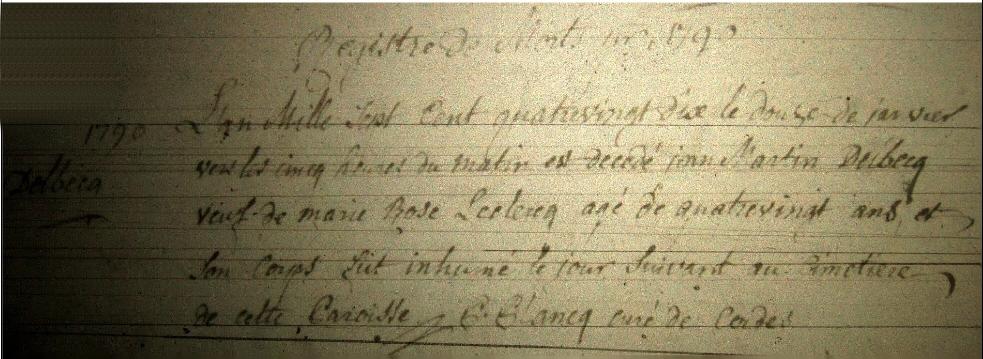 Registre de Morts 1790
1790 L'an Mille Sept Cent quatrevingt dix le douze de janvier
vers les cincq heures du matin est decedé jean Martin Delbecq
Delbecq
veuf de marie Rose Leclercq agé de quatrevingt ans, et
son Corps fut inhumé le jour suivant au Cimetiere
de cette Paroisse curé de Cordes